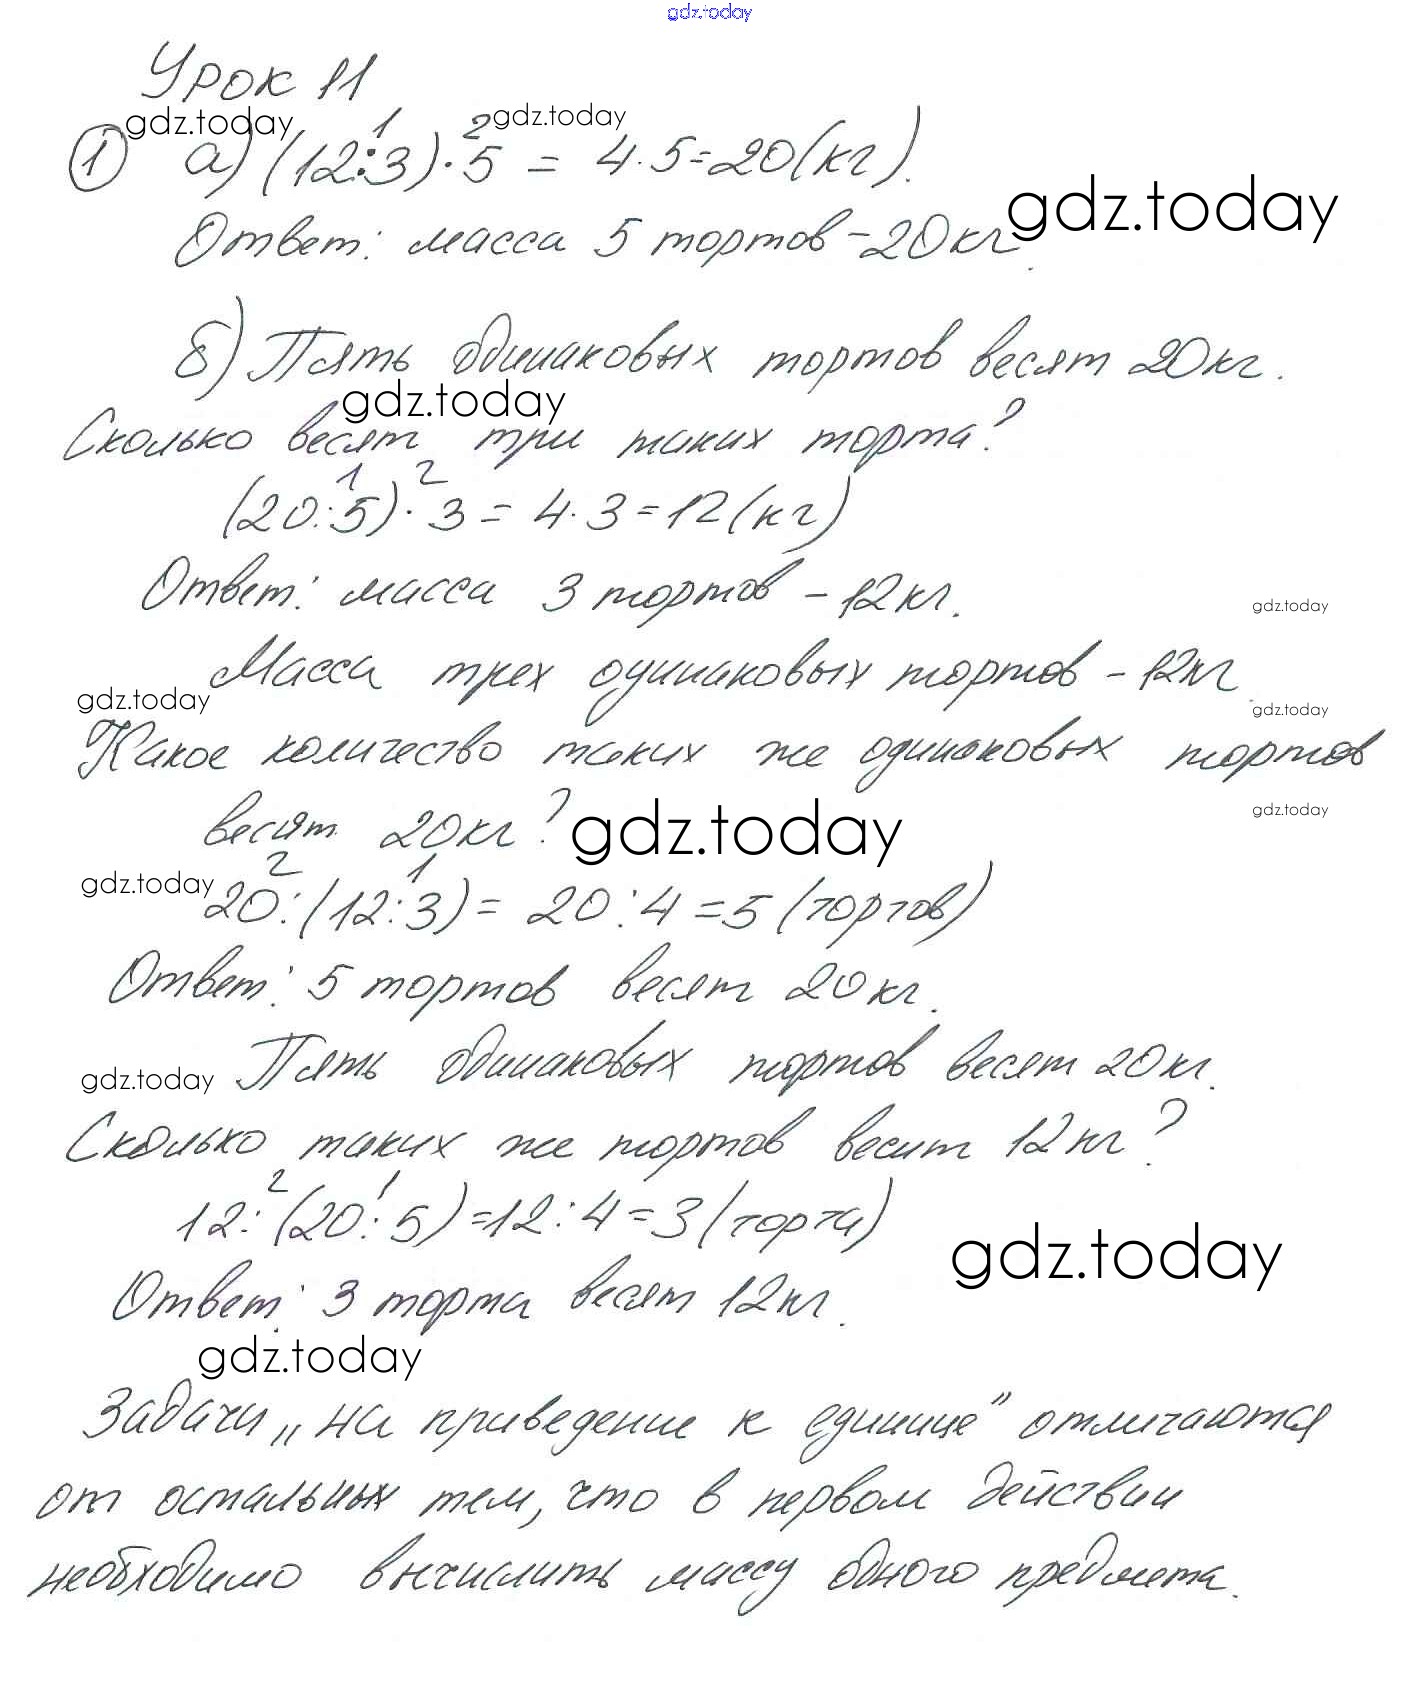 gdz.today
Урок 11
gdz.today gdz.today
1 2
① а) (12:3)·5 = 4·5=20(кг).
gdz.today
Ответ: масса 5 тортов - 20кг.
б) Пять одинаковых тортов весят 20кг.
gdz.today
Сколько весят три таких торта?
1 2
(20:5)·3 = 4·3=12(кг)
Ответ: масса 3 тортов - 12кг.
gdz.today
Масса трех одинаковых тортов - 12кг.
gdz.today
gdz.today
Какое количество таких же одинаковых тортов
весят 20кг?
gdz.today
gdz.today
2 1
gdz.today
20:(12:3)= 20:4=5 (тортов)
Ответ: 5 тортов весят 20кг.
Пять одинаковых тортов весят 20кг.
gdz.today
Сколько таких же тортов весит 12кг?
2 1
12:(20:5)=12:4=3(торта)
gdz.today
Ответ: 3 торта весят 12кг.
gdz.today
Задачи „на приведение к единице” отличаются
от остальных тем, что в первом действии
необходимо вычислить массу одного предмета.